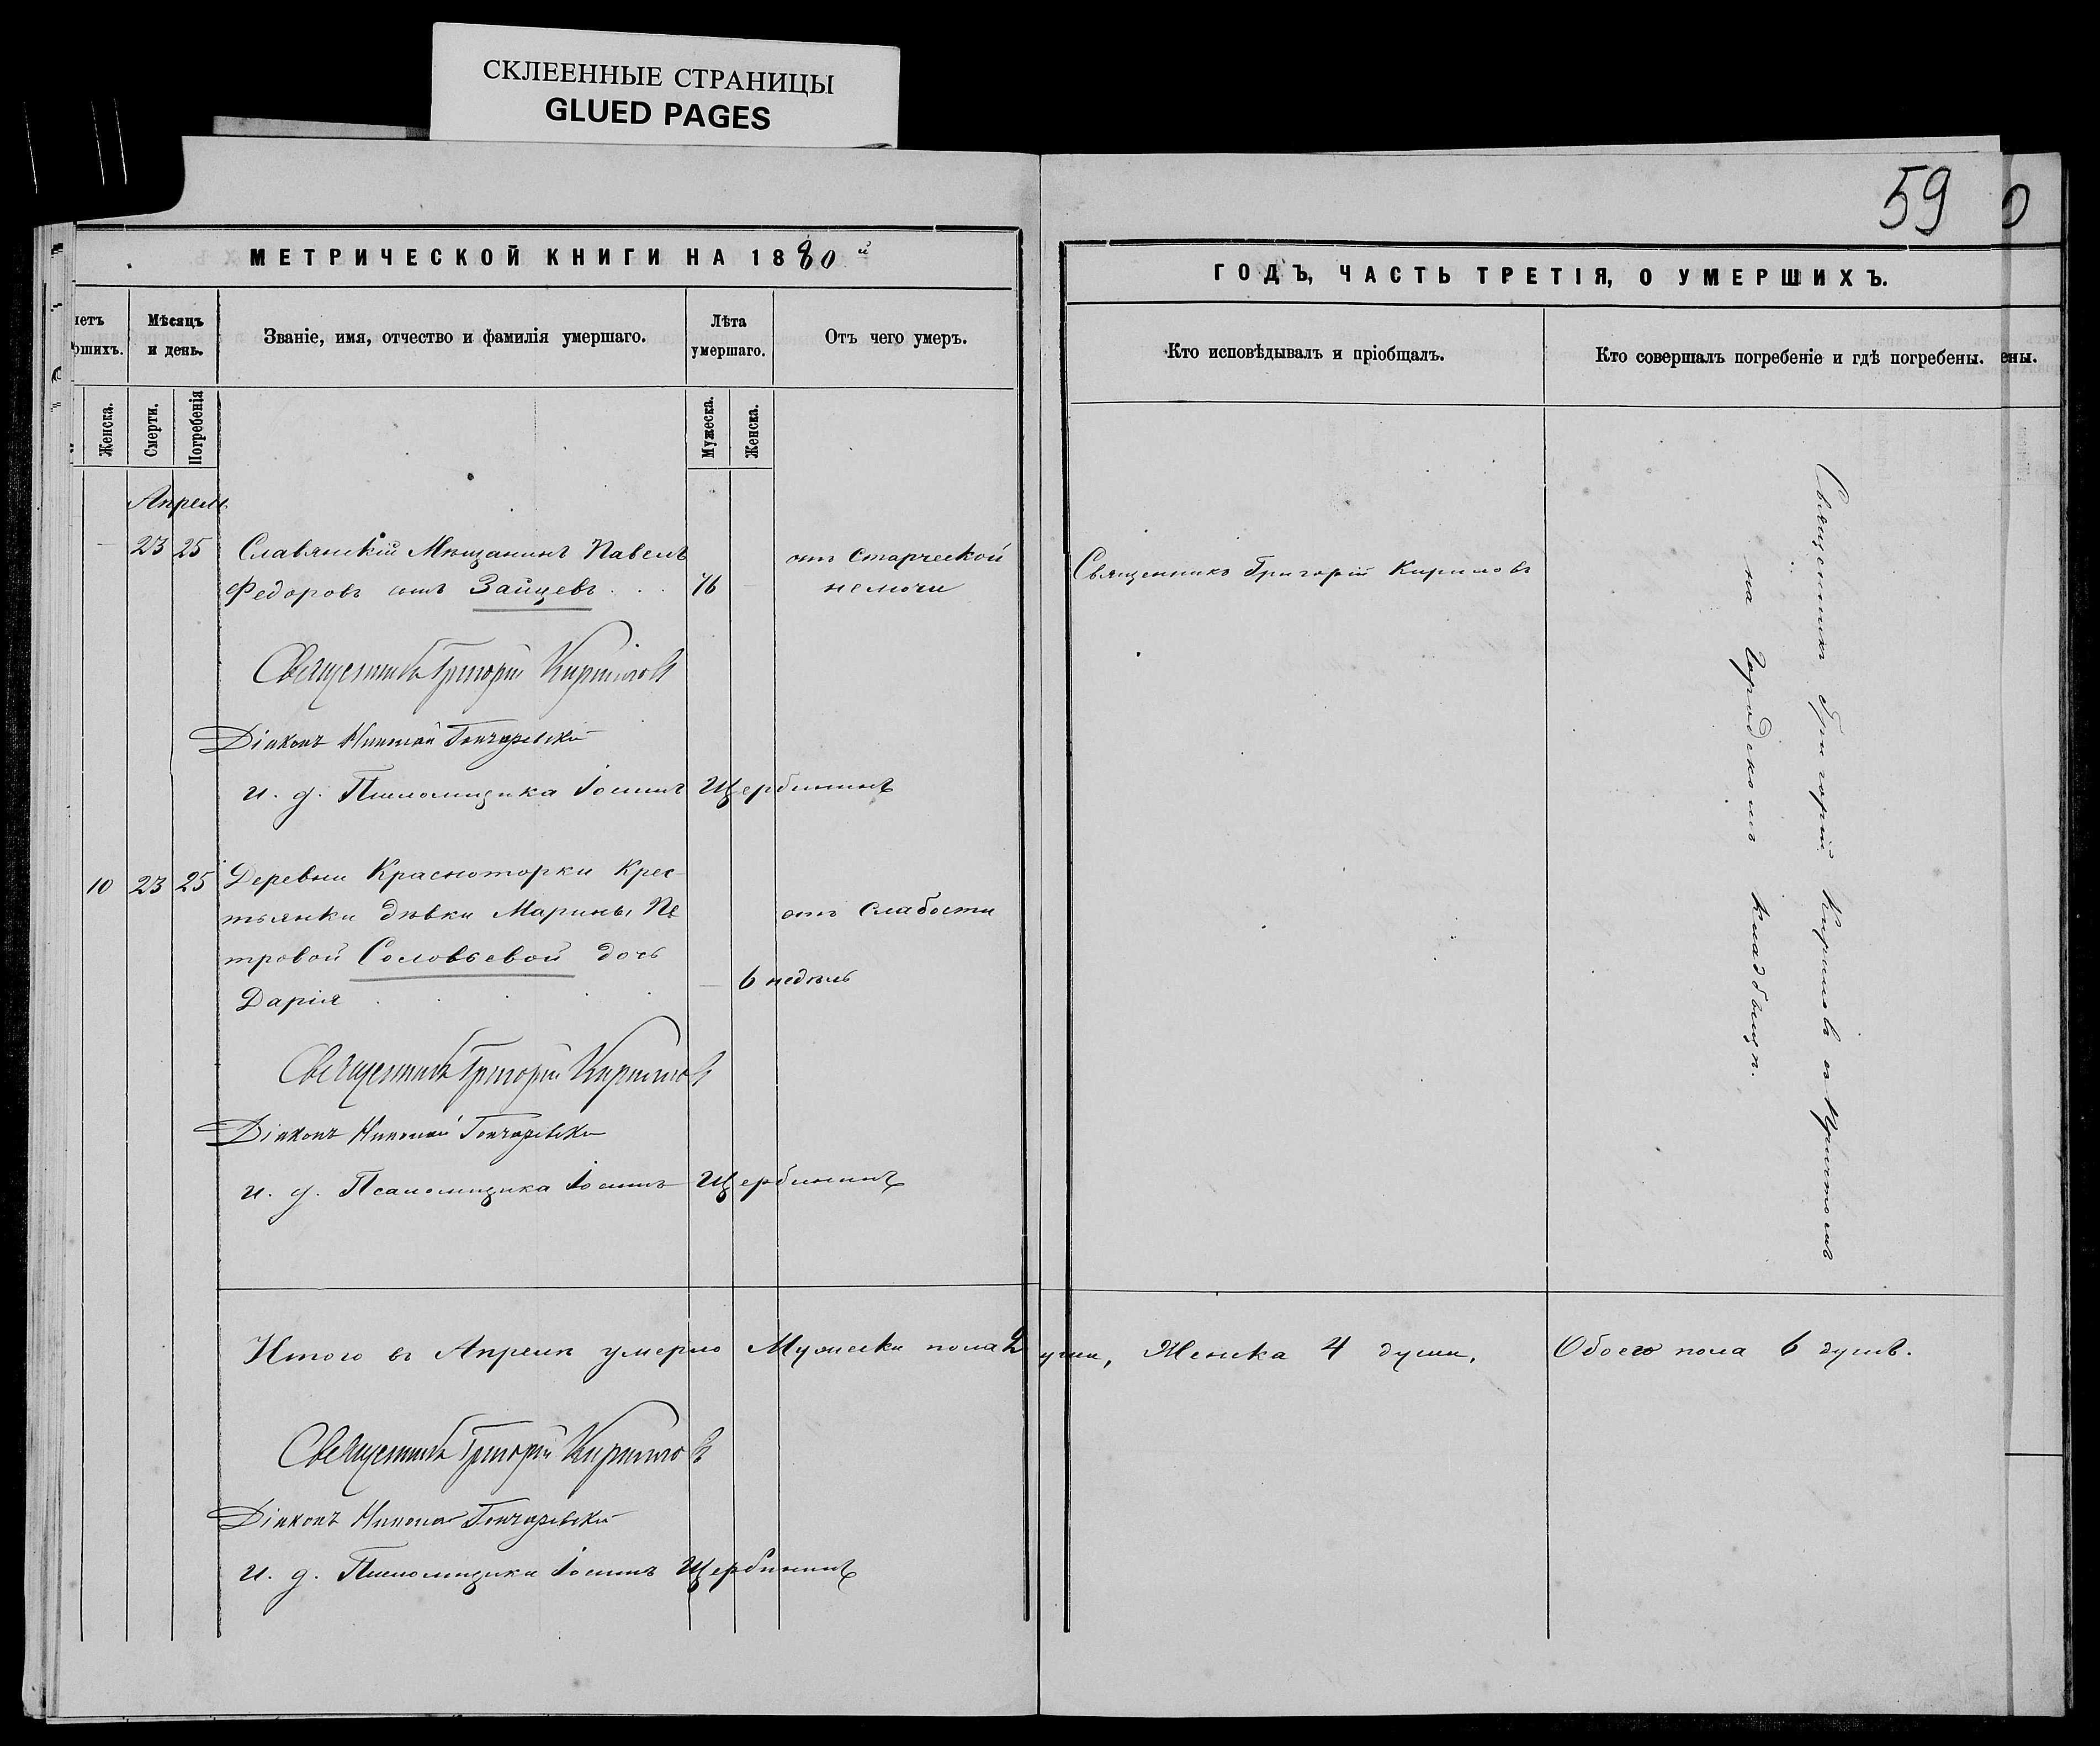 СКЛЕЕННЫЕ СТРАНИЦЫ
GLUED PAGES
59
0
МЕТРИЧЕСКОЙ КНИГИ НА 1880й
четъ
ршихъ.
Мѣсяцъ
и день.
Званіе, имя, отчество и фамилія умершаго.
Лѣта
умершаго.
Отъ чего умеръ.
Женска.
Смерти.
Погребенія
Мужеска.
Женска.
Апрель
23 25 Славянскій Мѣщанинъ Павелъ
отъ Старческой
Федоровъ сынъ Зайцевъ . . . 76
немочи
Священникъ Григорій Кириловъ
Діаконъ Николай Гончаревскій
и. д. Псаломщика Іоаннъ Щербининъ
10 23 25 Деревни Красноторки Крес-
тьянки дѣвки Марины Пе
отъ Слабости
тровой Соловьевой дочь
6 недѣль
Дарія . . . .
Священникъ Григорій Кириловъ
Діаконъ Николай Гончаревскій
и. д. Псаломщика Іоаннъ Щербининъ
Итого въ Апрелѣ умерло Мужеска пола 2
Священникъ Григорій Кириловъ
Діаконъ Николай Гончаревскій
и. д. Псаломщика Іоаннъ Щербининъ
ГОДЪ, ЧАСТЬ ТРЕТІЯ, О УМЕРШИХЪ.
Кто исповѣдывалъ и пріобщалъ.
Кто совершалъ погребеніе и гдѣ погребены.
ены.
Священникъ Григорій Кириловъ
Священникъ Григорій Кириловъ съ Причтомъ
на Городскомъ кладбищѣ.
уши, Женска 4 души, Обоего пола 6 душъ.